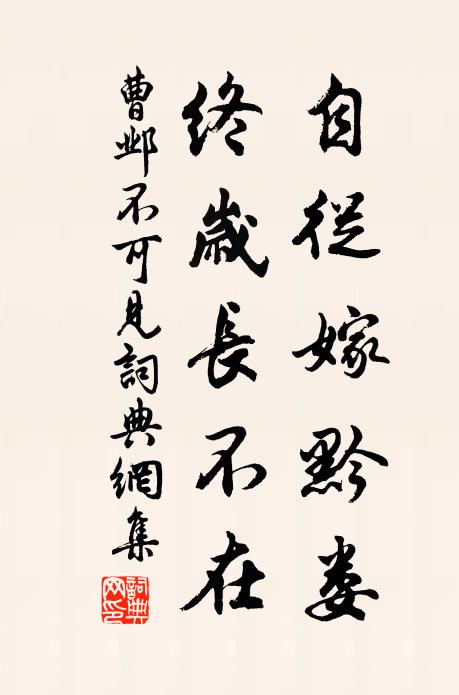 自從嫁黔婁
終歲長不在
曹鄴不可見詞典網集
詞典網印